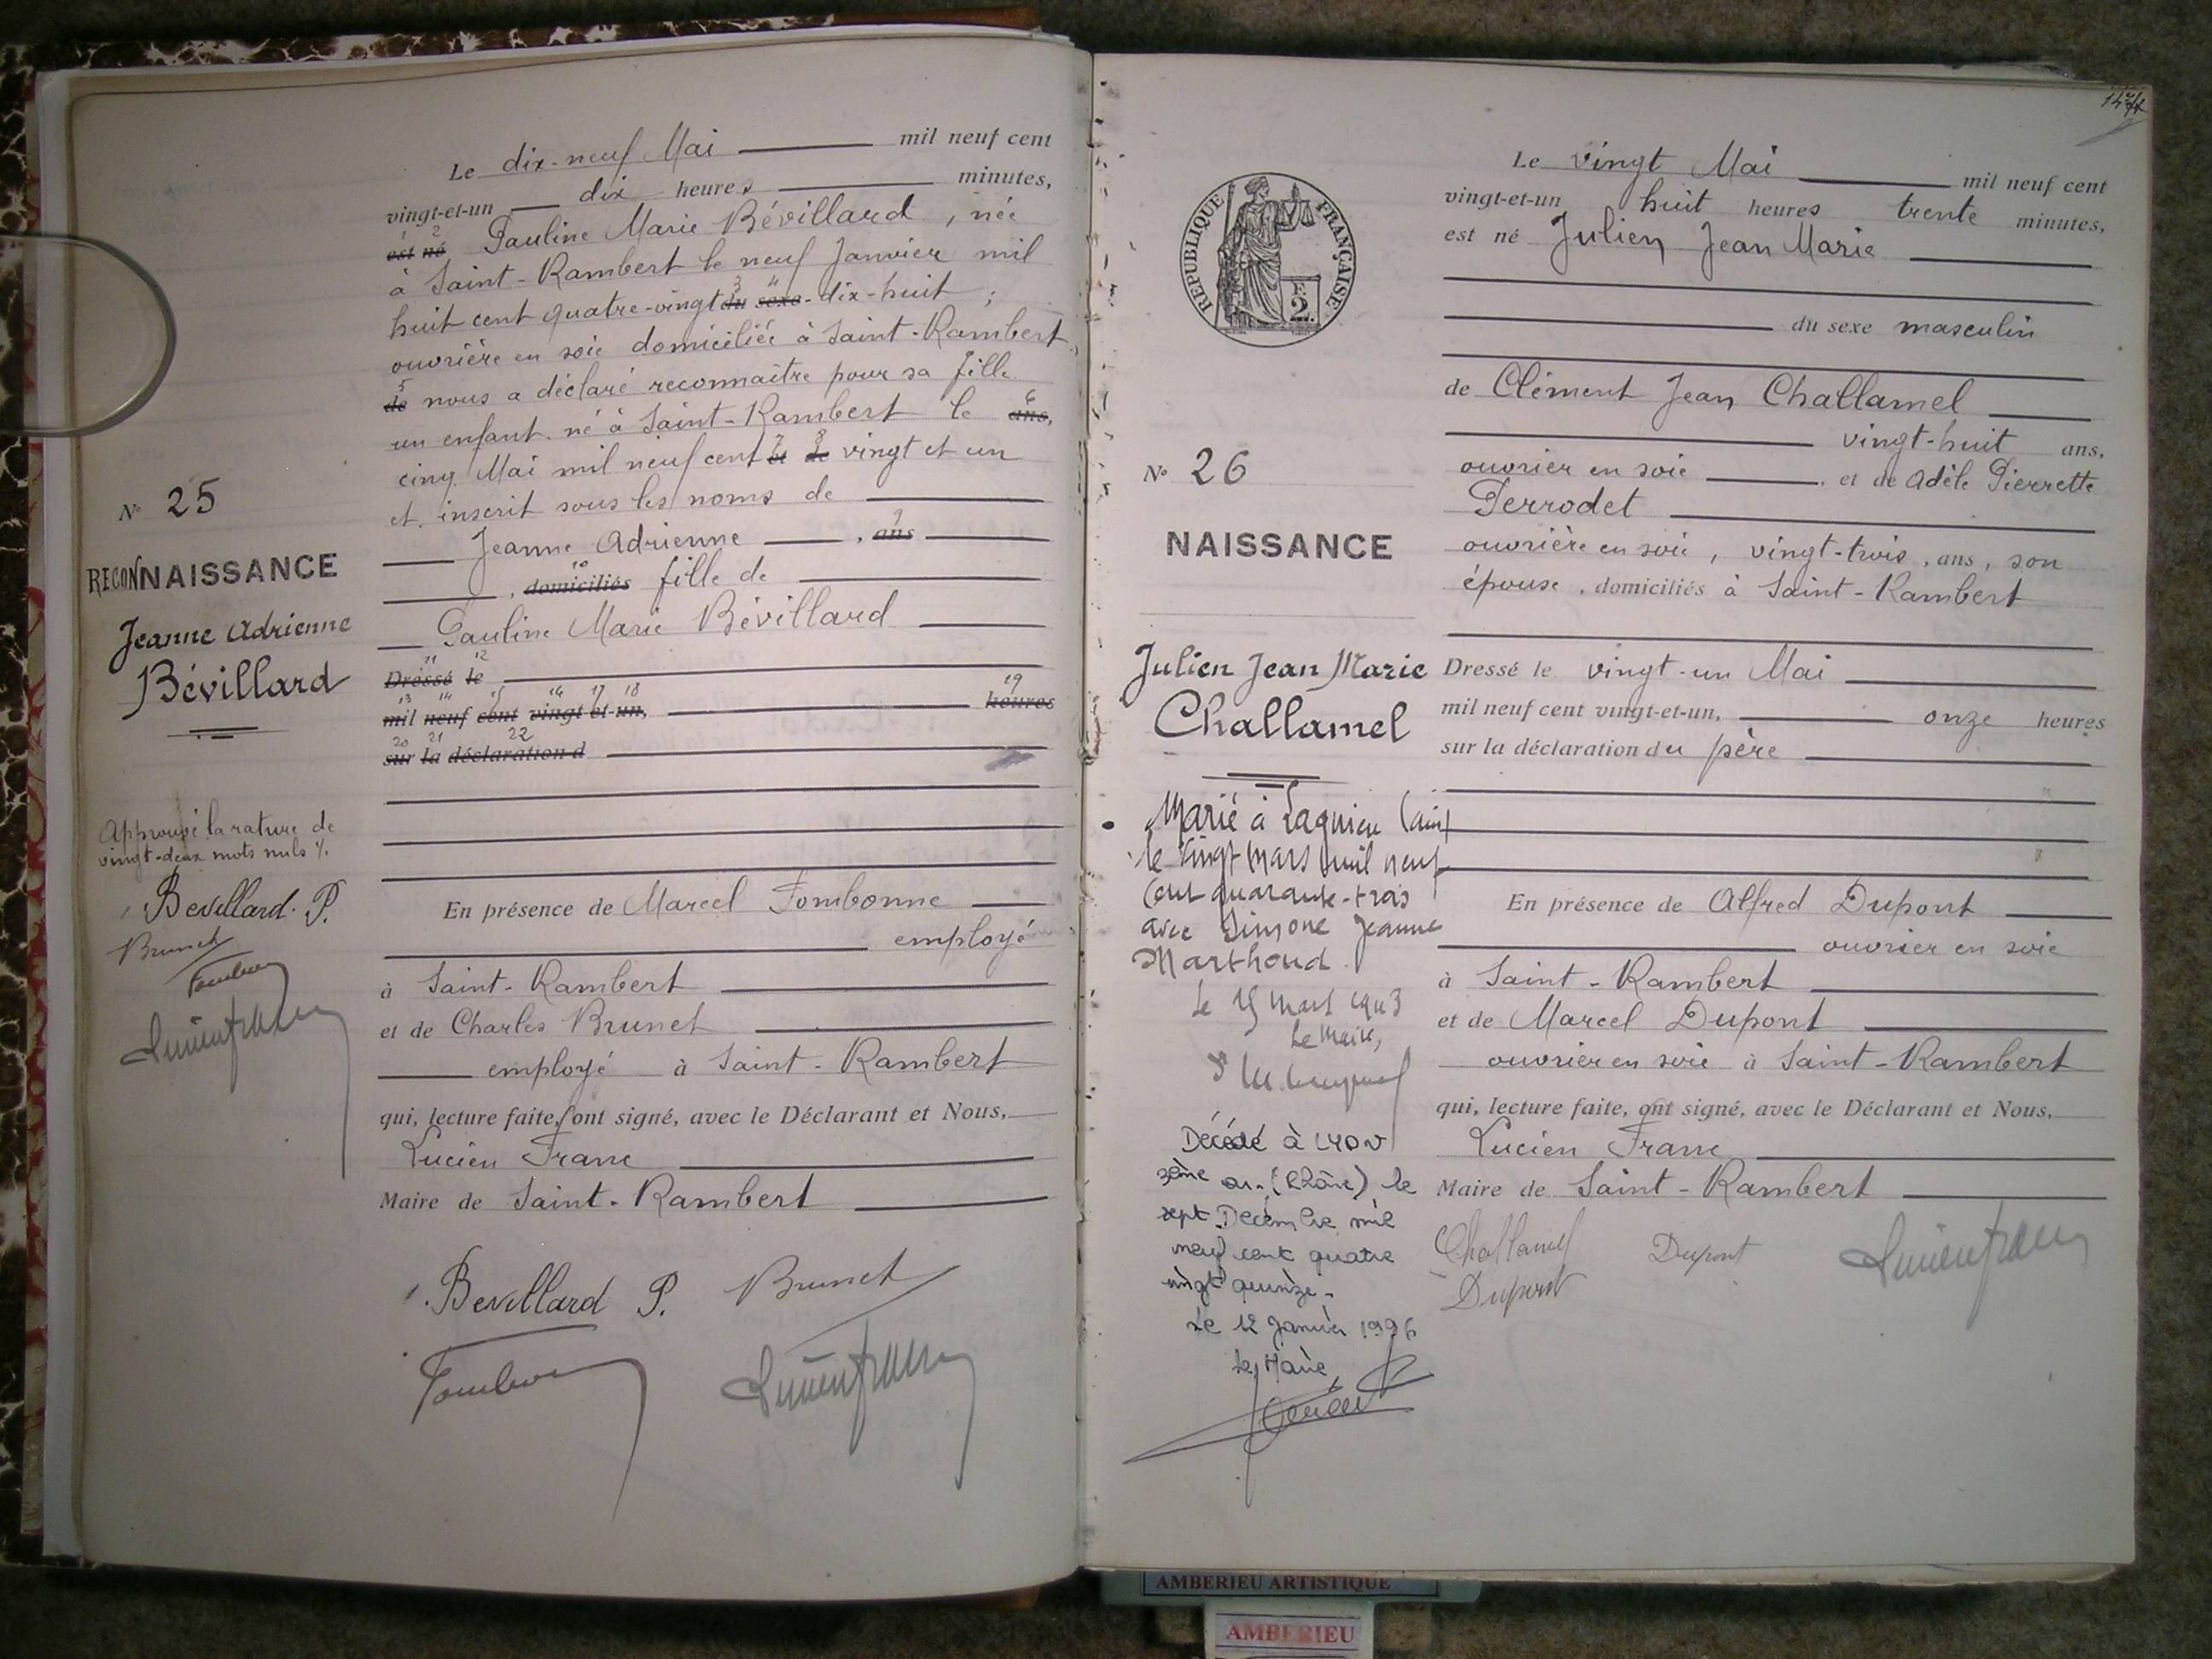 Le dix-neuf Mai mil neuf cent
vingt-et-un dix heures minutes,
1 2
est né Pauline Marie Bévillard, née
à Saint-Rambert le neuf Janvier mil
3 4
huit cent quatre-vingt du sexe-dix-huit;
ouvrière en soie domiciliée à Saint-Rambert,
5
de nous a déclaré reconnaitre pour sa fille
6
un enfant né à Saint-Rambert le ans,
7 8
cinq Mai mil neuf cent et de vingt et un
et inscrit sous les noms de
9
Jeanne Adrienne, ans
10
, domiciliés fille de
Pauline Marie Bévillard
11 12
Dressé le
13 14 15 16 17 18 19
mil neuf cent vingt-et-un, heures
20 21 22
sur la déclaration d
En présence de Marcel Fombonne
employé
à Saint-Rambert
et de Charles Brunet
employé à Saint-Rambert
qui, lecture faite, ont signé, avec le Déclarant et Nous,
Lucien Franc
Maire de Saint-Rambert
Bevillard P. Brunet
N° 25
RECONNAISSANCE
Jeanne Adrienne
Bévillard
Approuvé la rature de
vingt-deux mots nuls
Bevillard. P.
Brunet
RÉPUBLIQUE FRANÇAISE
F.
2.
N° 26
NAISSANCE
Julien Jean Marie
Challamel
Marié à Lagnieu (Ain)
le vingt mars mil neuf
cent quarante-trois
avec Simone Jeanne
Marthoud.
Le mars 1943
Le Maire,
Décédé à LYON
3ème arr. (Rhône) le
sept Décembre mil
neuf cent quatre
vingt quinze.
Le 12 Janvier 1996
Le Maire,
Le vingt Mai mil neuf cent
vingt-et-un huit heures trente minutes,
est né Julien Jean Marie
du sexe masculin
de Clément Jean Challamel
vingt-huit ans,
ouvrier en soie, et de Adèle Pierrette
Perrodet
ouvrière en soie, vingt-trois, ans, son
épouse, domiciliés à Saint-Rambert
Dressé le vingt-un Mai
mil neuf cent vingt-et-un, onze heures
sur la déclaration du père
En présence de Alfred Dupont
ouvrier en soie
à Saint-Rambert
et de Marcel Dupont
ouvrier en soie à Saint-Rambert
qui, lecture faite, ont signé, avec le Déclarant et Nous,
Lucien Franc
Maire de Saint-Rambert
Challamel Dupont
Dupont
AMBERIEU ARTISTIQUE
AMBERIEU